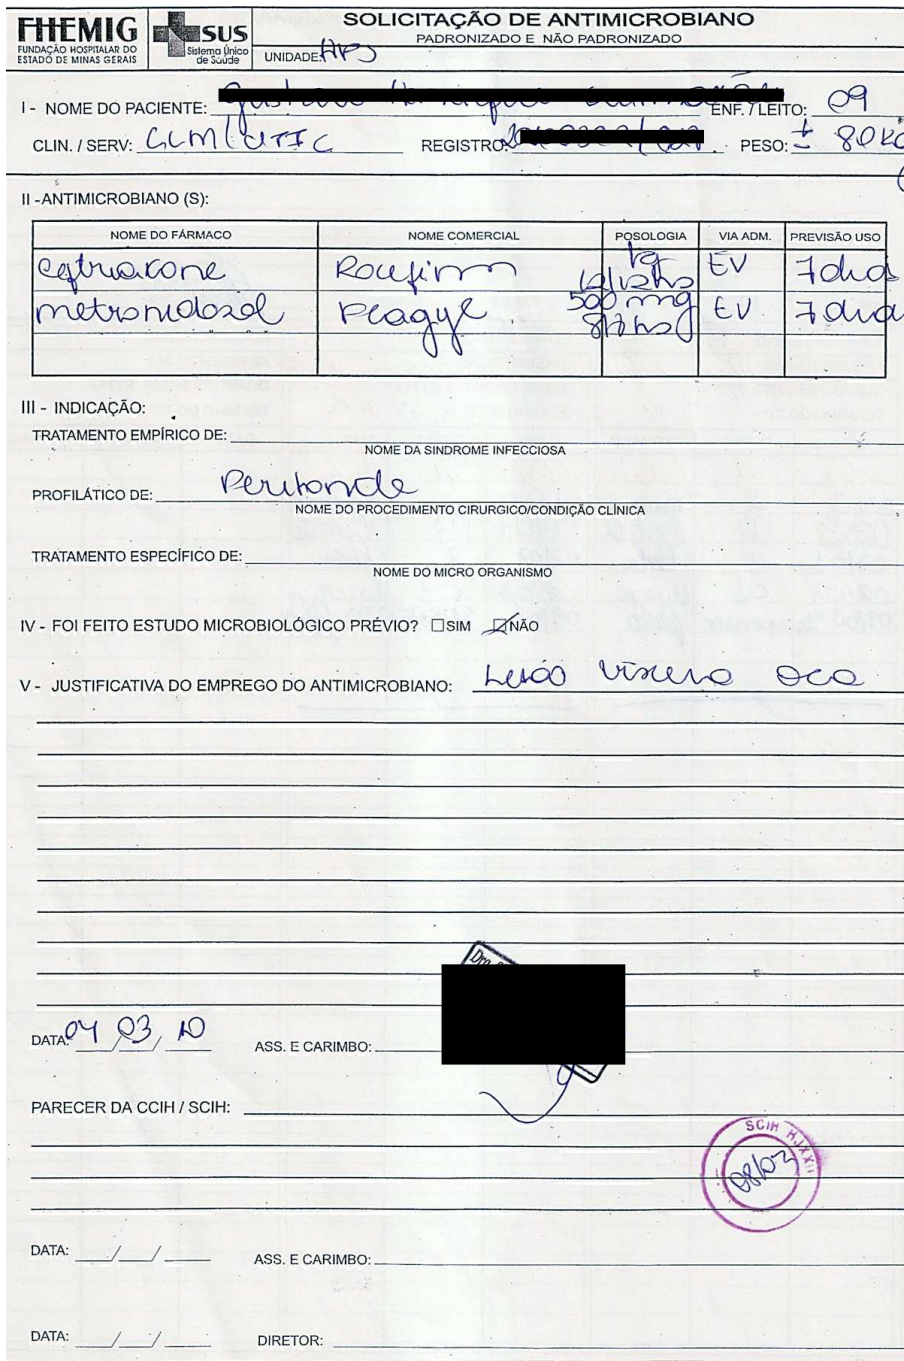 FHEMIG
FUNDAÇÃO HOSPITALAR DO
ESTADO DE MINAS GERAIS
SUS
Sistema Único
de Saúde
SOLICITAÇÃO DE ANTIMICROBIANO
PADRONIZADO E NÃO PADRONIZADO
UNIDADE:
I - NOME DO PACIENTE: ENF. / LEITO: 09
CLIN. / SERV: REGISTRO: PESO: ± 80
II - ANTIMICROBIANO (S):
NOME DO FÁRMACO NOME COMERCIAL POSOLOGIA VIA ADM. PREVISÃO USO
1g
12/12hs
EV 7 dias
metronidazol Flagyl 500 mg EV 7 dia
8/8hs
III - INDICAÇÃO:
TRATAMENTO EMPÍRICO DE:
NOME DA SINDROME INFECCIOSA
PROFILÁTICO DE: Peritonite
NOME DO PROCEDIMENTO CIRURGICO/CONDIÇÃO CLÍNICA
TRATAMENTO ESPECÍFICO DE:
NOME DO MICRO ORGANISMO
IV - FOI FEITO ESTUDO MICROBIOLÓGICO PRÉVIO? SIM NÃO
V - JUSTIFICATIVA DO EMPREGO DO ANTIMICROBIANO: Lesão víscera oca
DATA: 04 / 03 / 10 ASS. E CARIMBO:
PARECER DA CCIH / SCIH:
SCIH HJXXIII
DATA: / / ASS. E CARIMBO:
DATA: / / DIRETOR: